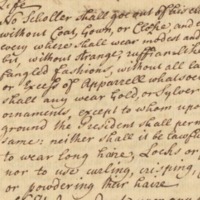 Life
No Scholler shall goe out of his cha
without Coat, Gown, or Cloke; and
every where shall wear modest and
bit, without strange; ruffianlike
fangled fashions, without all la
or Excess of Apparrell whatsoe
shall any wear Gold, or Sylver
ornaments, except to whom up
ground the President shall per
same: neither shall it be lawfu
to wear long haire; Locks or
nor to use curling, crisping,
or powdering their haire